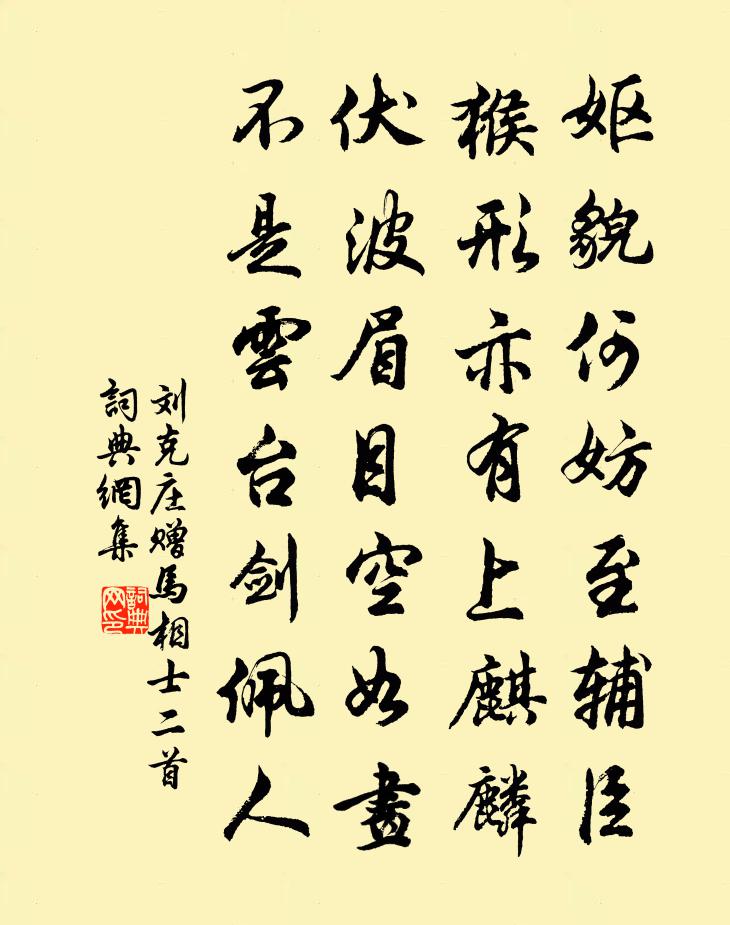 妪貌何妨至辅臣
猴形亦有上麒麟
伏波眉目空如畫
不是雲台剑佩人
刘克庄赠馬相士二首
詞典網集
詞典网印